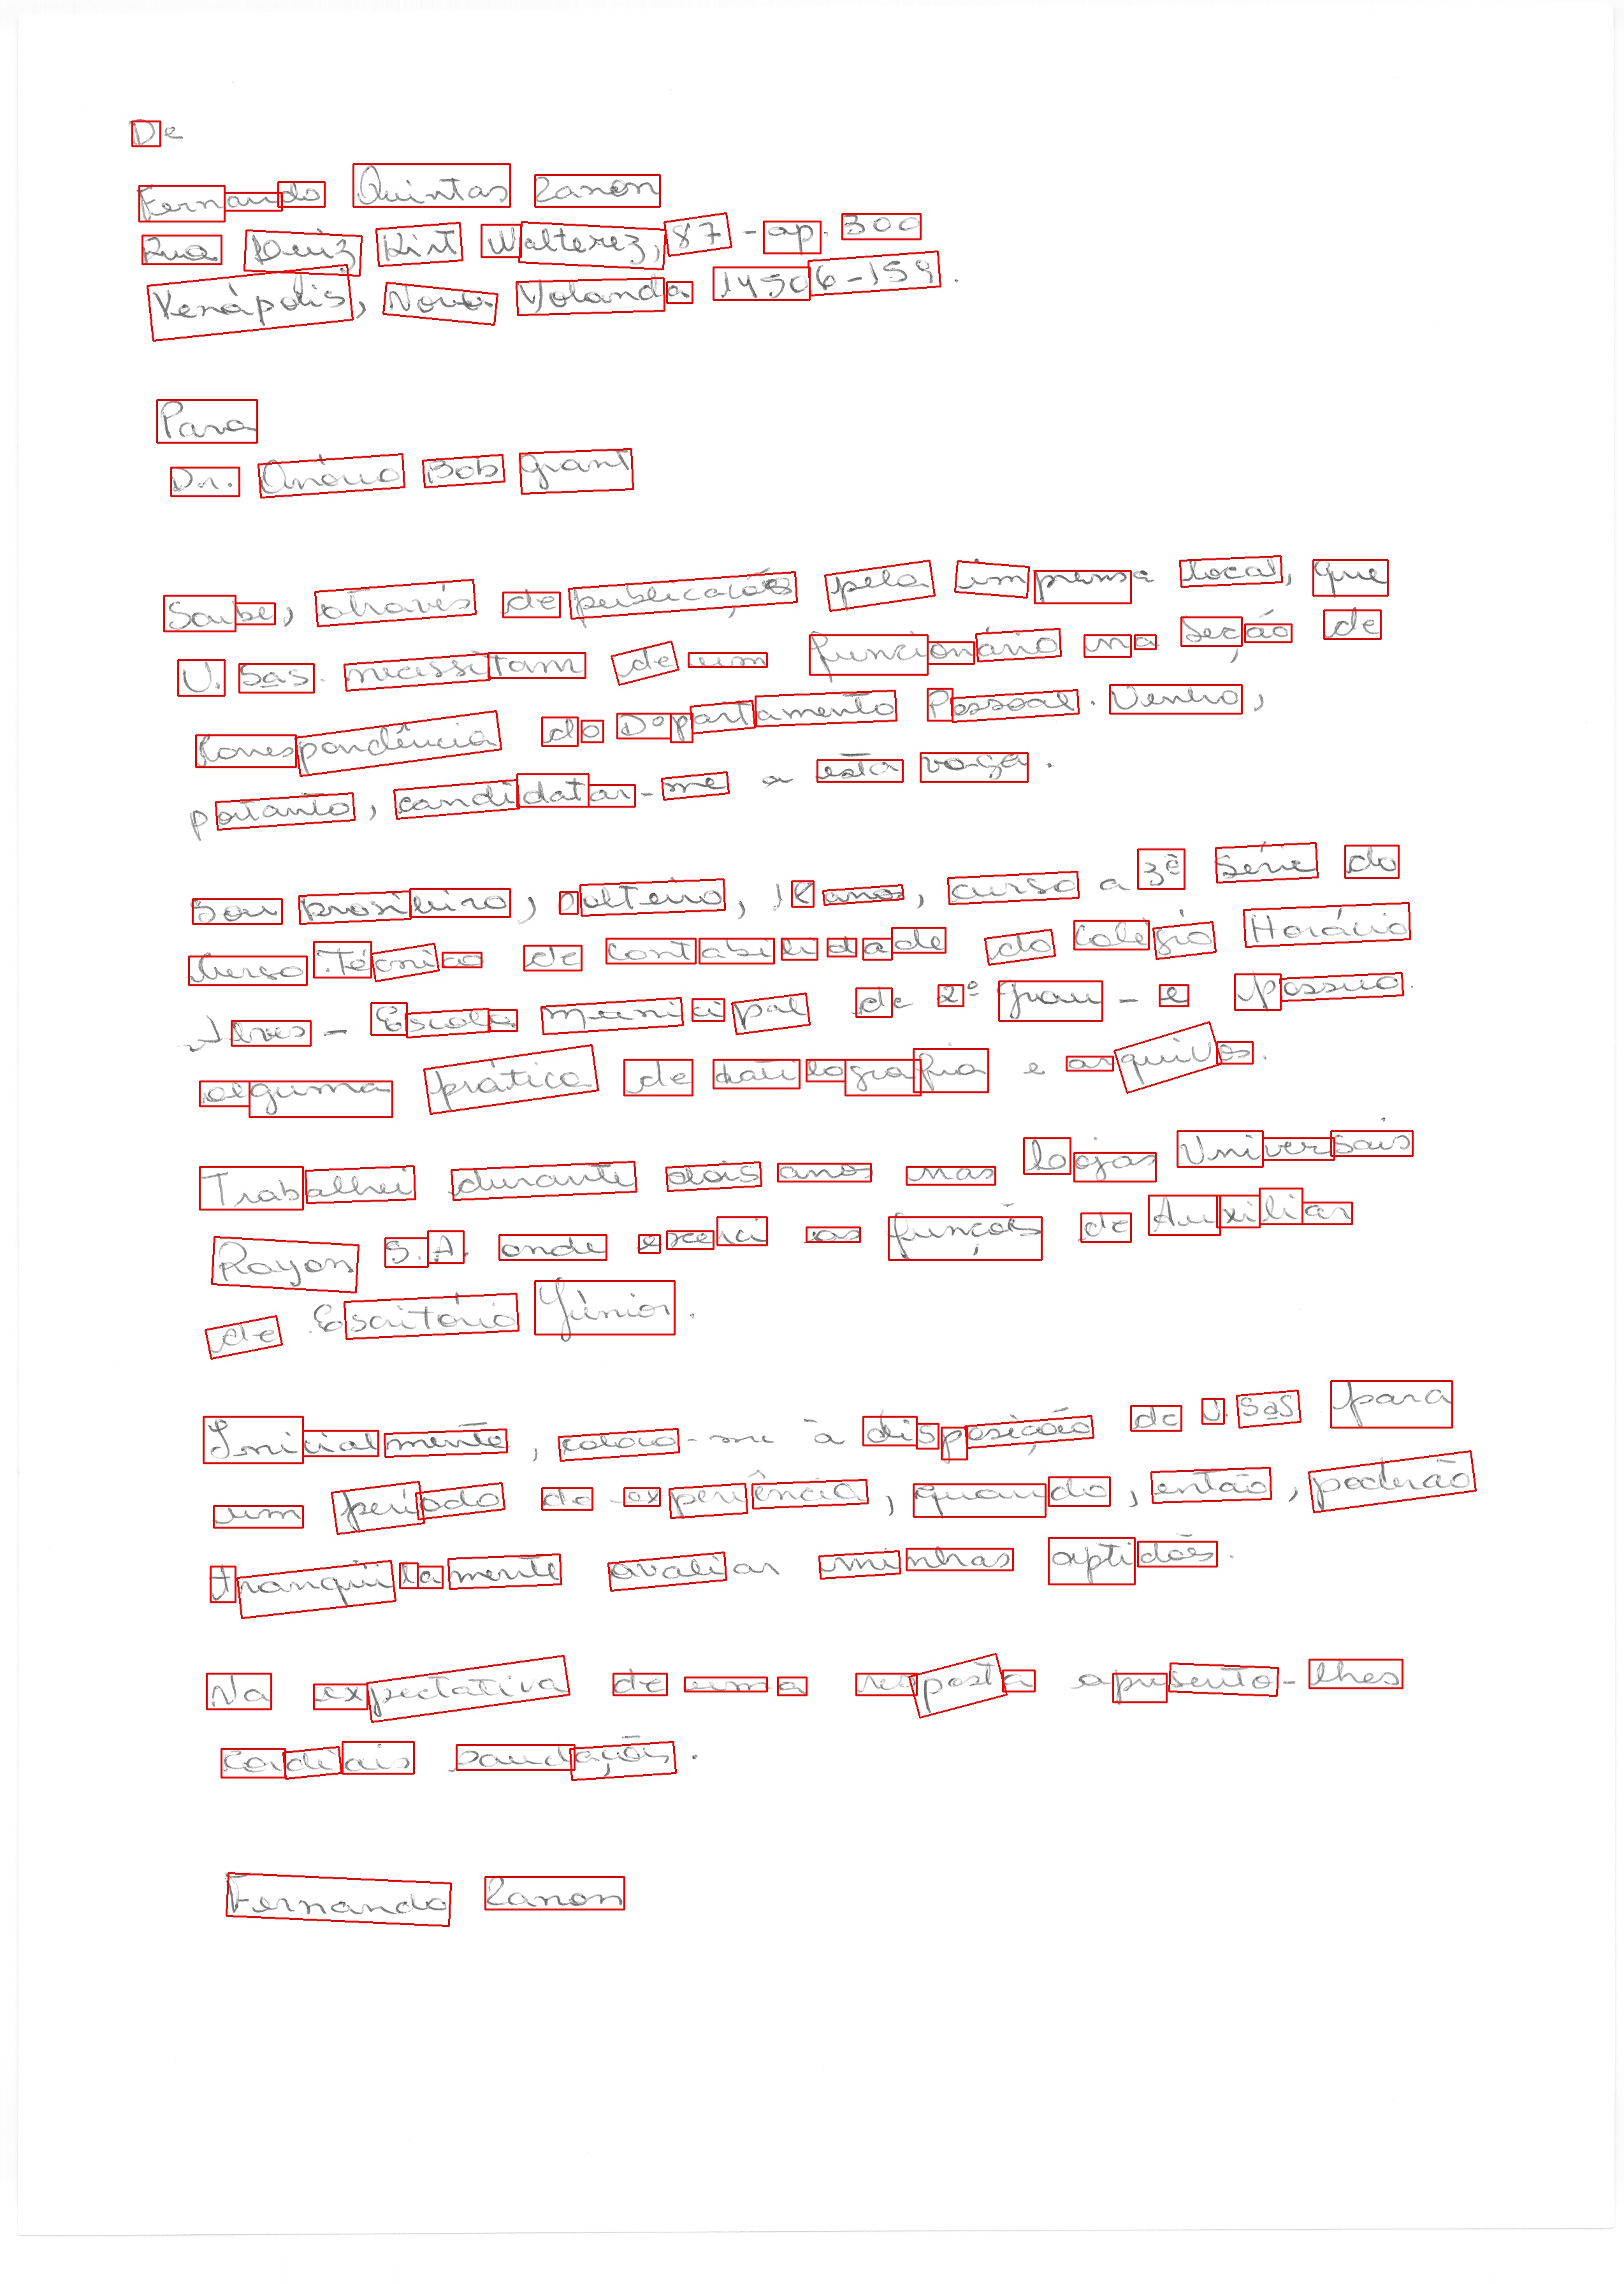 De
Fernando Quintas Zanon
Rua Luiz Kirt Walterez, 87 - ap. 300
Venápolis, Nova Yolanda 14506-159.
Para
Dr. Onório Bob Grant
Soube, através de publicações pela imprensa local, que
V. Sas. necessitam de um funcionário na seção de
Correspondência do Departamento Pessoal. Venho,
portanto, candidatar-me a esta vaga.
Sou brasileiro, solteiro, 18 anos, curso a 3ª série do
Curso Técnico de Contabilidade do Colégio Horácio
Alves - Escola municipal de 2º Grau - e possuo
alguma prática de datilografia e arquivos.
Trabalhei durante dois anos nas Lojas Universais
Rayon S.A. onde exerci as funções de Auxiliar
de Escritório Júnior.
Inicialmente, coloco-me à disposição de V. Sas para
um período de experiência, quando, então, poderão
tranquilamente avaliar minhas aptidões.
Na expectativa de uma resposta apresento-lhes
cordiais saudações.
Fernando Zanon